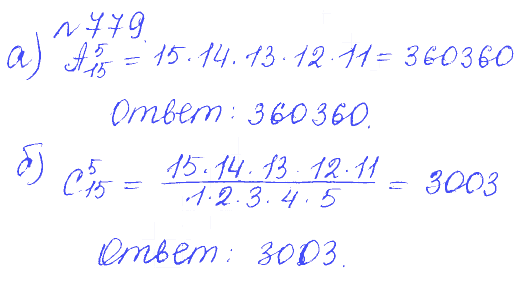 №779.
а) A⁵₁₅ = 15·14·13·12·11 = 360360
Ответ: 360360.
б) C⁵₁₅ = (15·14·13·12·11)/(1·2·3·4·5) = 3003
Ответ: 3003.